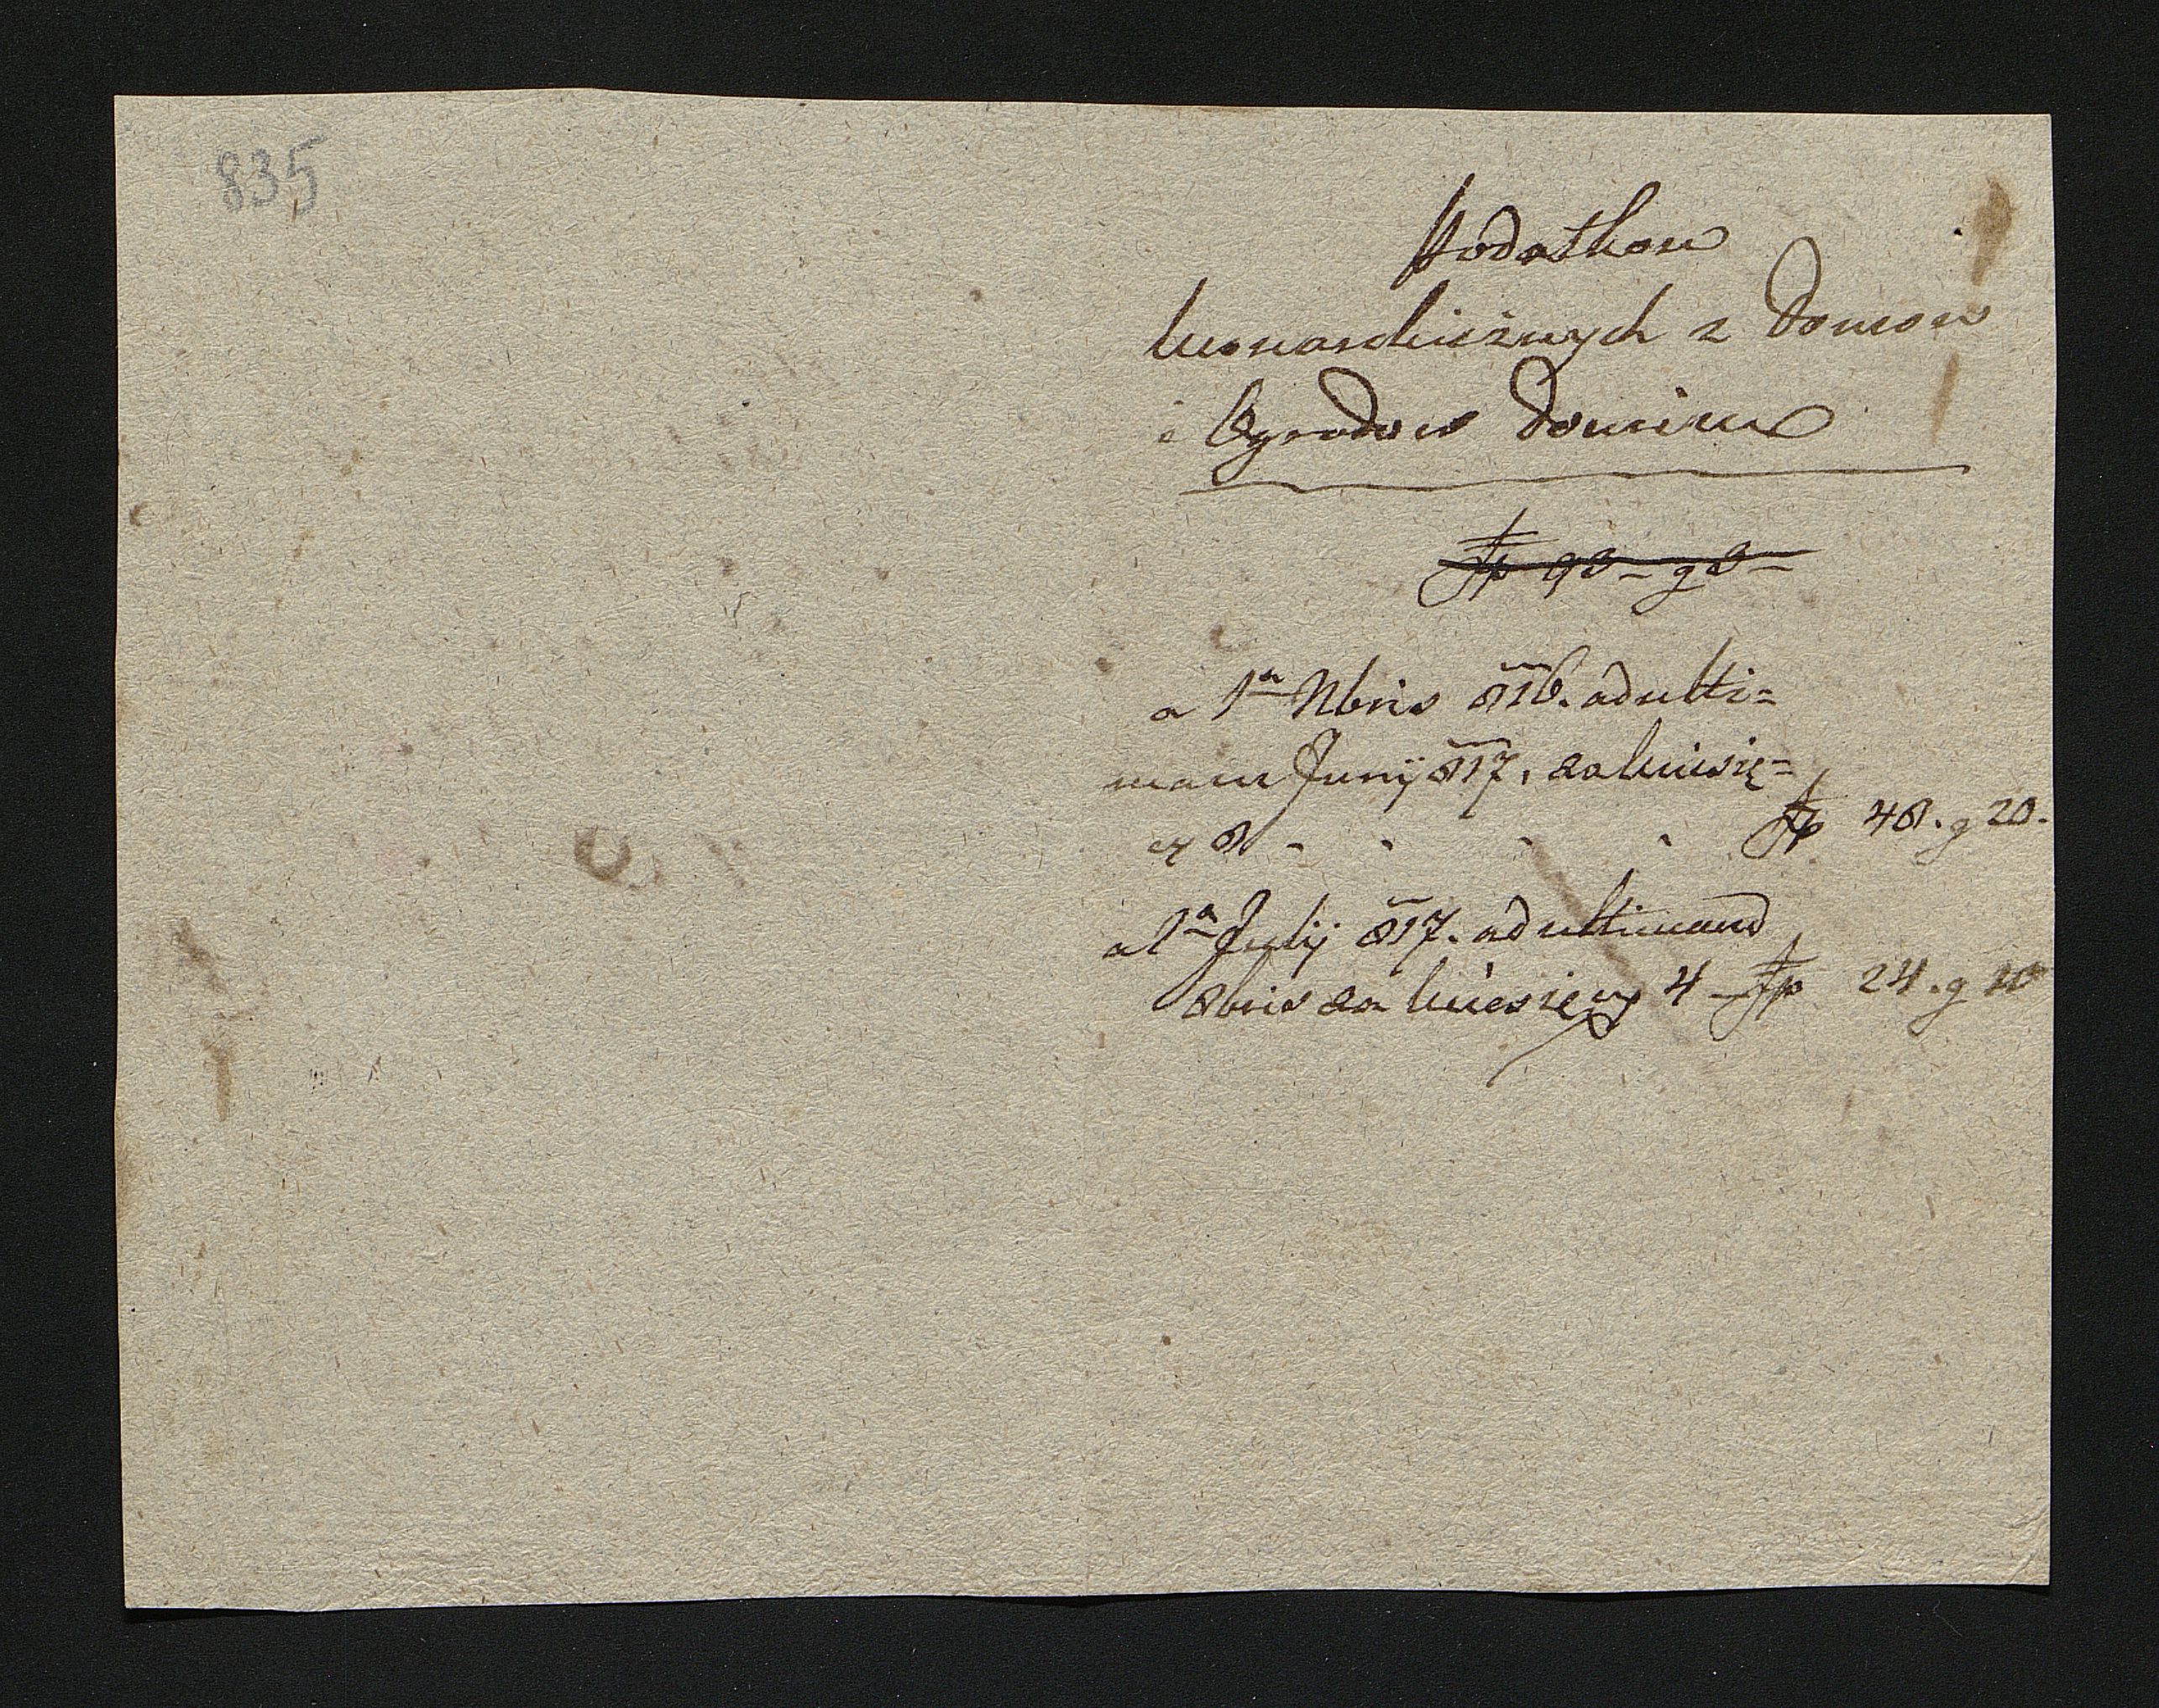 835
Podatkow
Monarchicznych z Domow
i Ogrodow Dominu
a 1ª Nbris 816. ad ulti=
mam Junij 817. za Miesię=
cy 8 - - - - fp 48. g 20.
a 1ª Julij 817. ad ultimam
8bris za Miesięcy 4 - fp 24. g 10